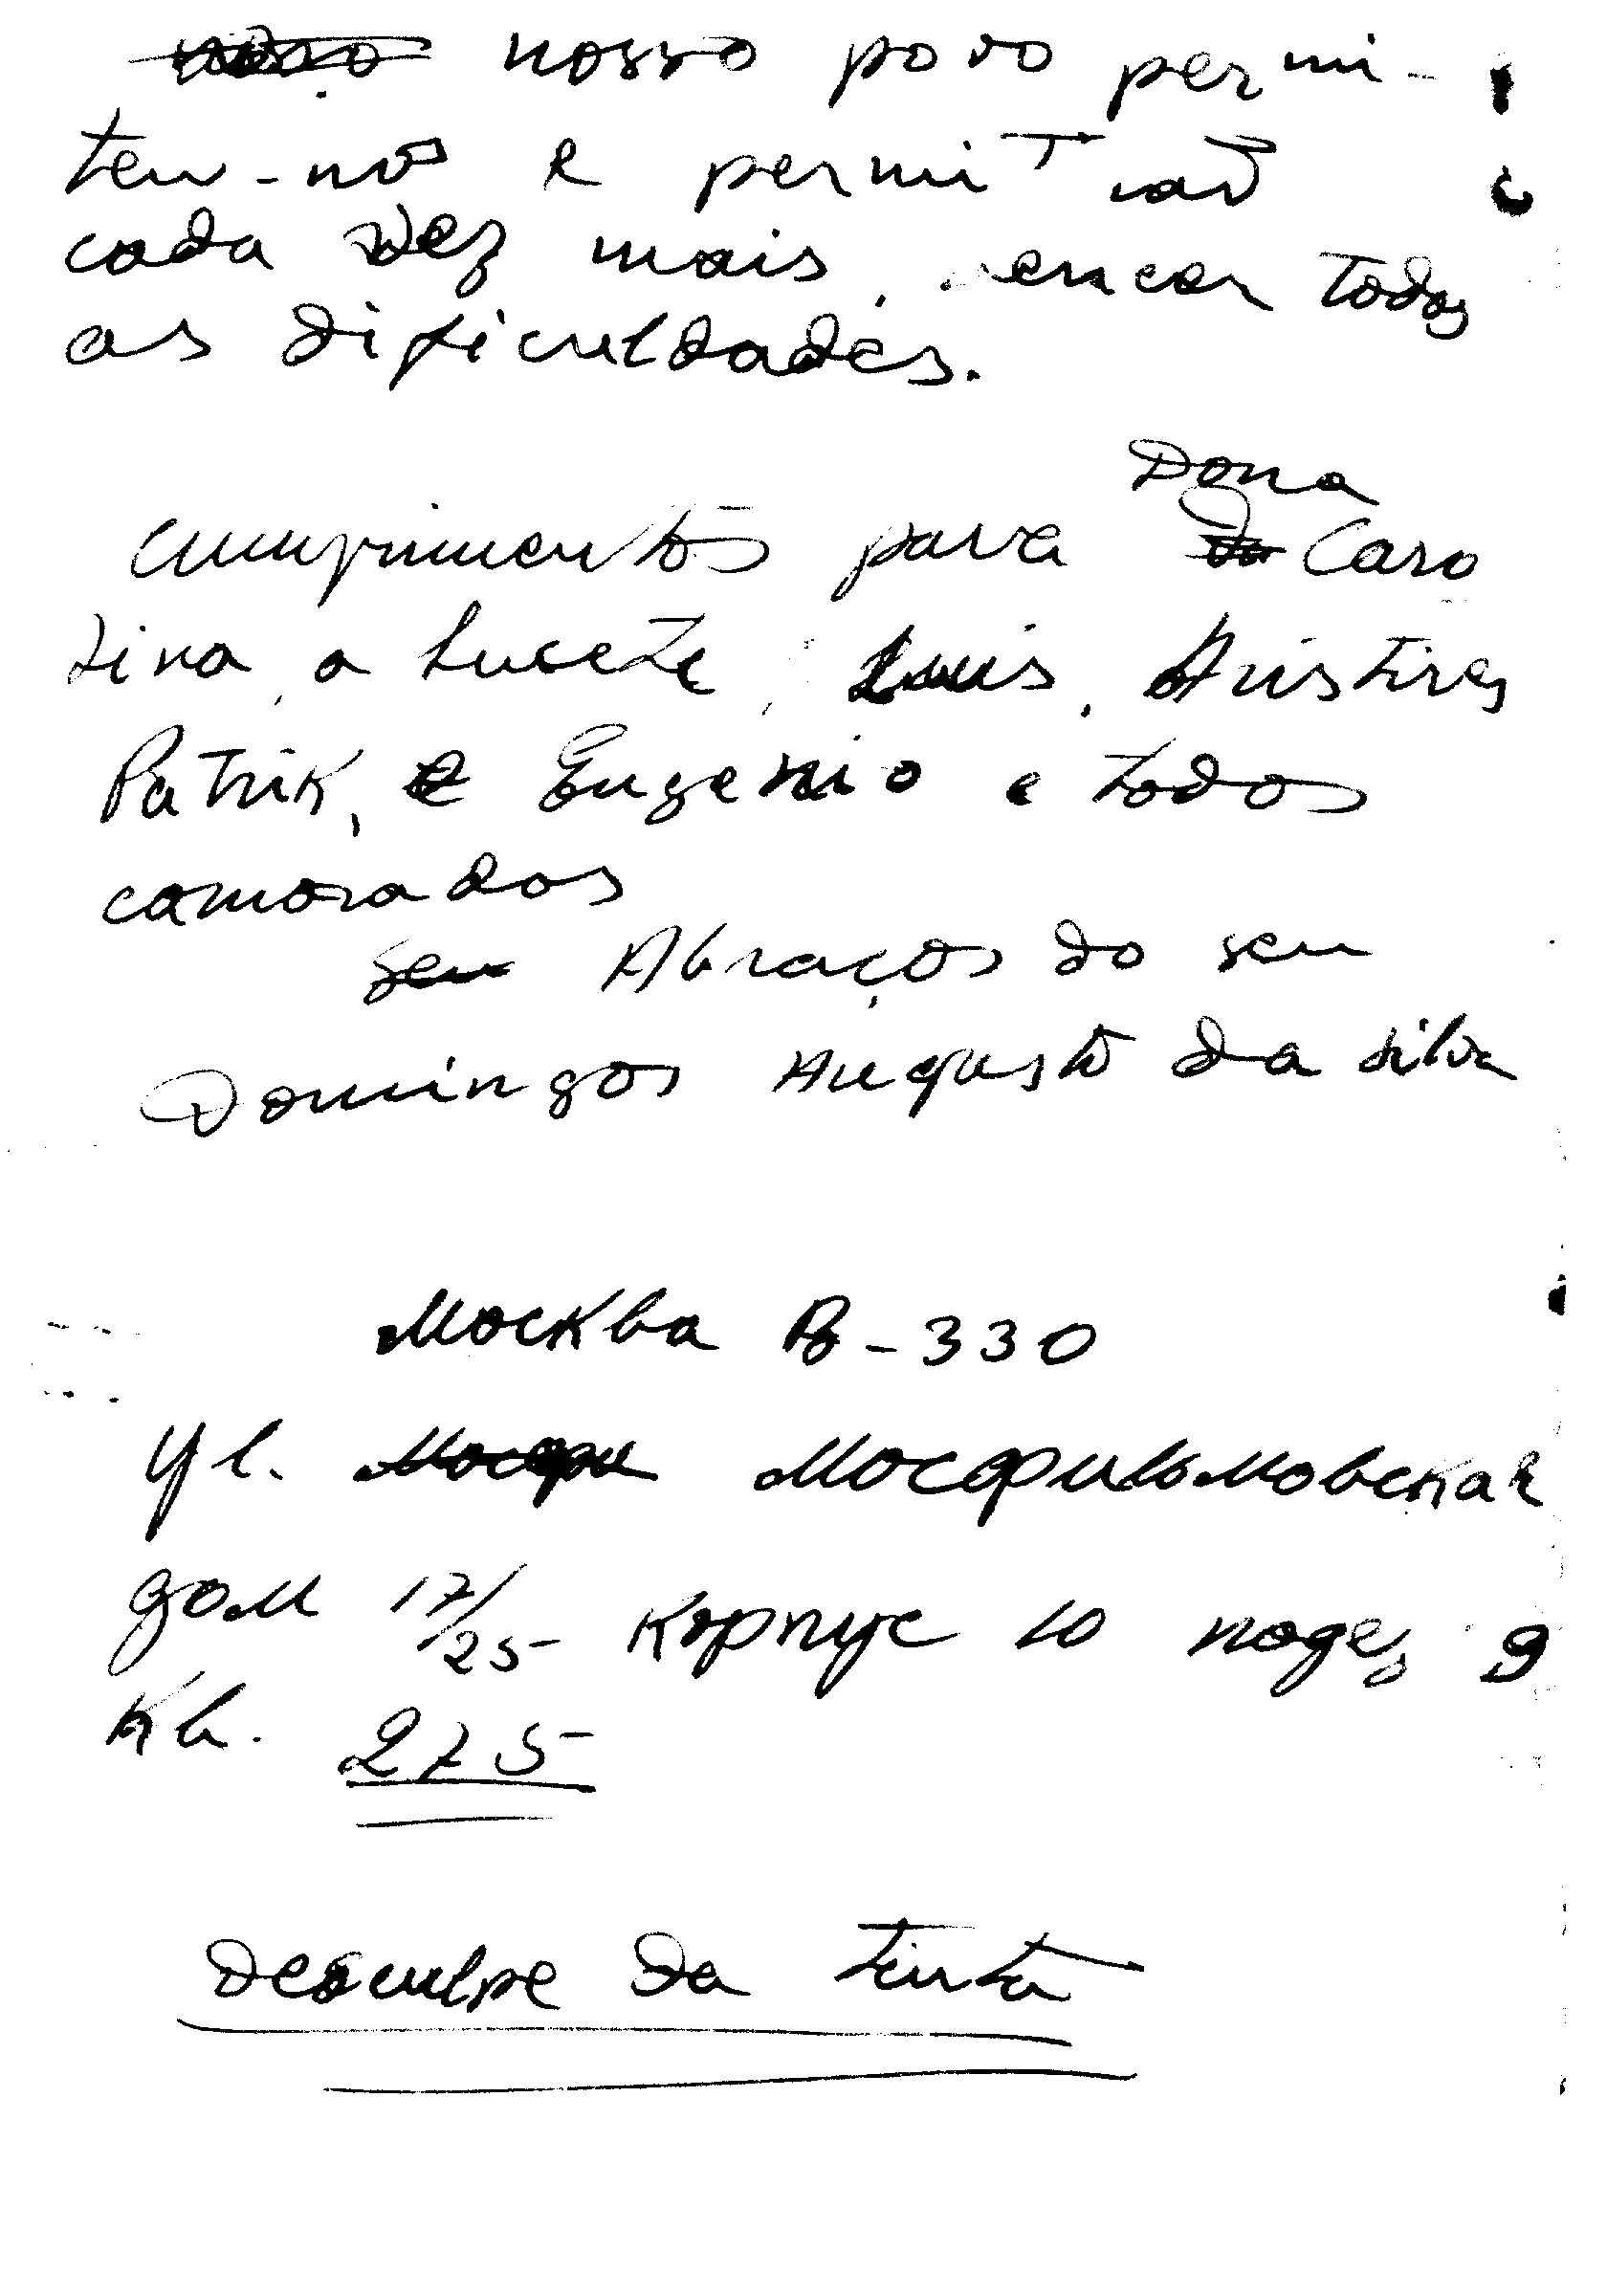 nosso povo permi-
tem-nos e permitirão
cada vez mais, vencer todas
as dificuldades.
Dona
Cumprimentos para Caro
lina, a Lucete, Luis, Aristires
Patrik, e Eugenio e todos
camaradas
Abraços do seu
Domingos Augusto da Silva
Москва В-330
ул. Мосфильмовская
дом 17/25 корпус 10 подез 9
кв. 275
Desculpe da tinta